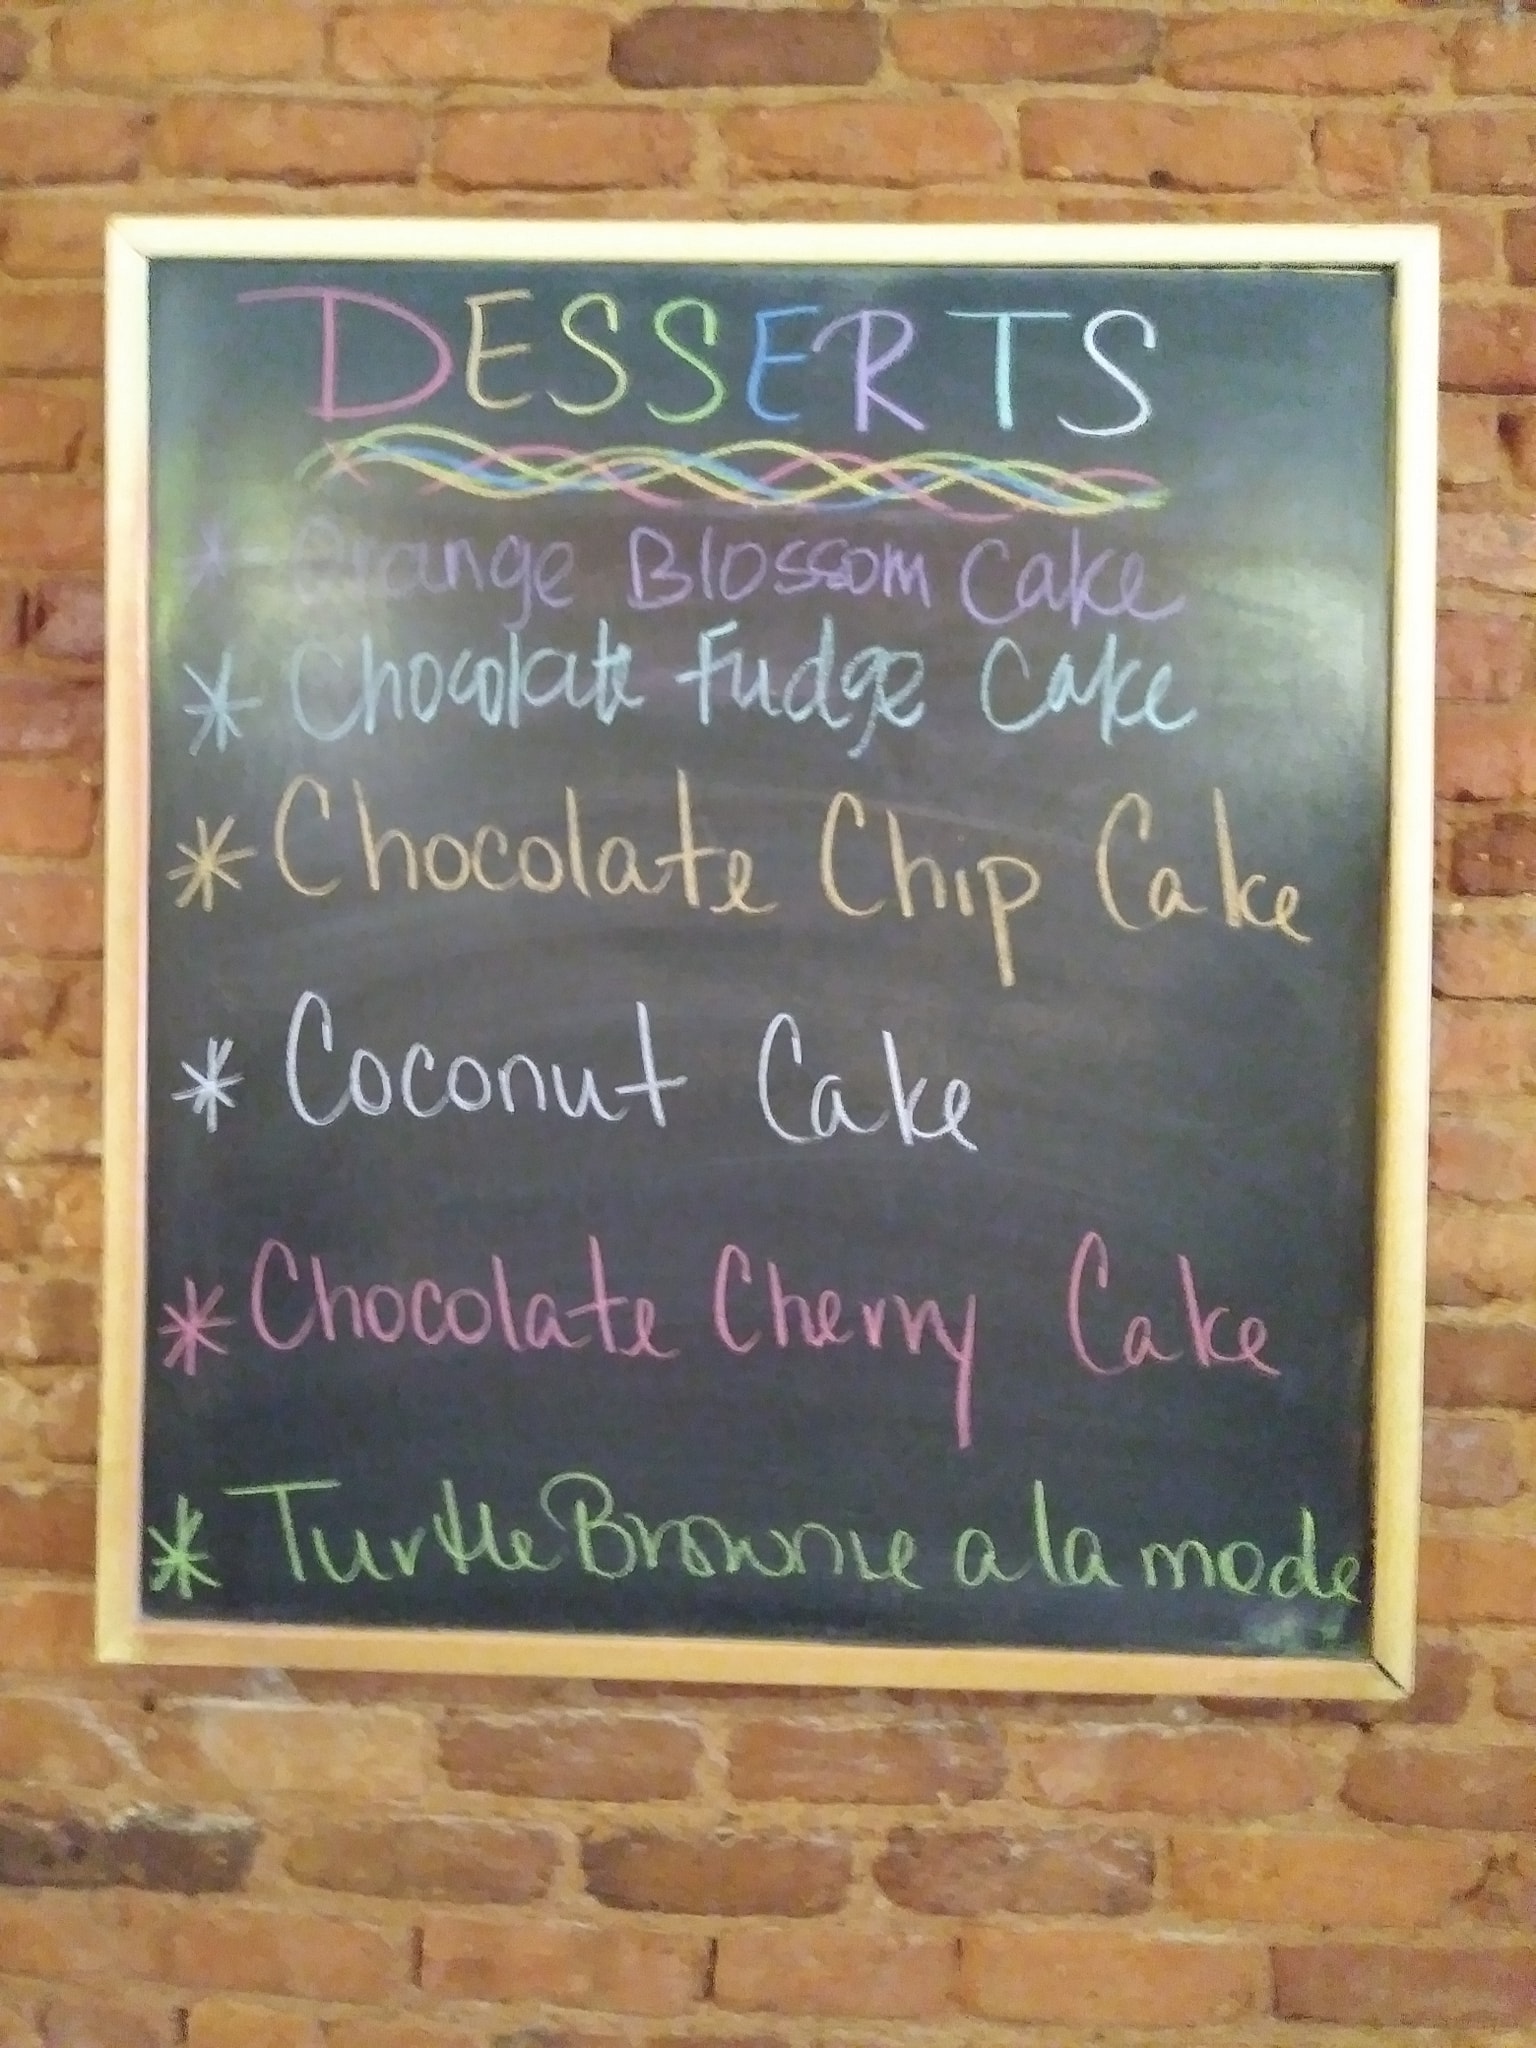 DESSERTS
* Orange Blossom Cake
* Chocolate Fudge Cake
* Chocolate Chip Cake
* Coconut Cake
* Chocolate Cherry Cake
* Turtle Brownie a la mode